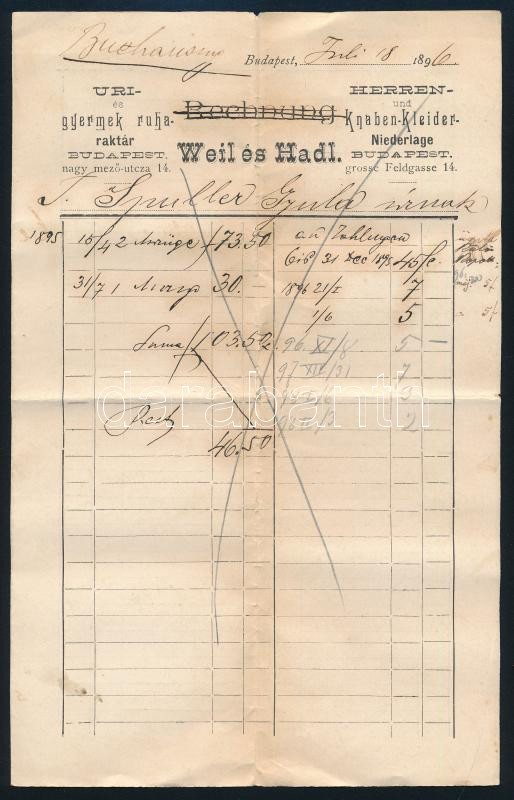 Budapest, Juli 18 1896.
URI-
és
gyermek ruha-
raktár
BUDAPEST.
nagy mező-utcza 14.
Rechnung
Weil és Hadl.
HERREN-
und
Knaben-Kleider-
Niederlage
BUDAPEST.
grosse Feldgasse 14.
T. Spuller Gyula úrnak
1895 15/4 2 Anzüge 73.50
31/7 1 30.—
Suma 103.50
Rest
46.50
bis 31 Dec 1895 45
1896 21/I 7
1/6 5
96. XI/8 5 —
97 XII/31 7
3
2
darabanth